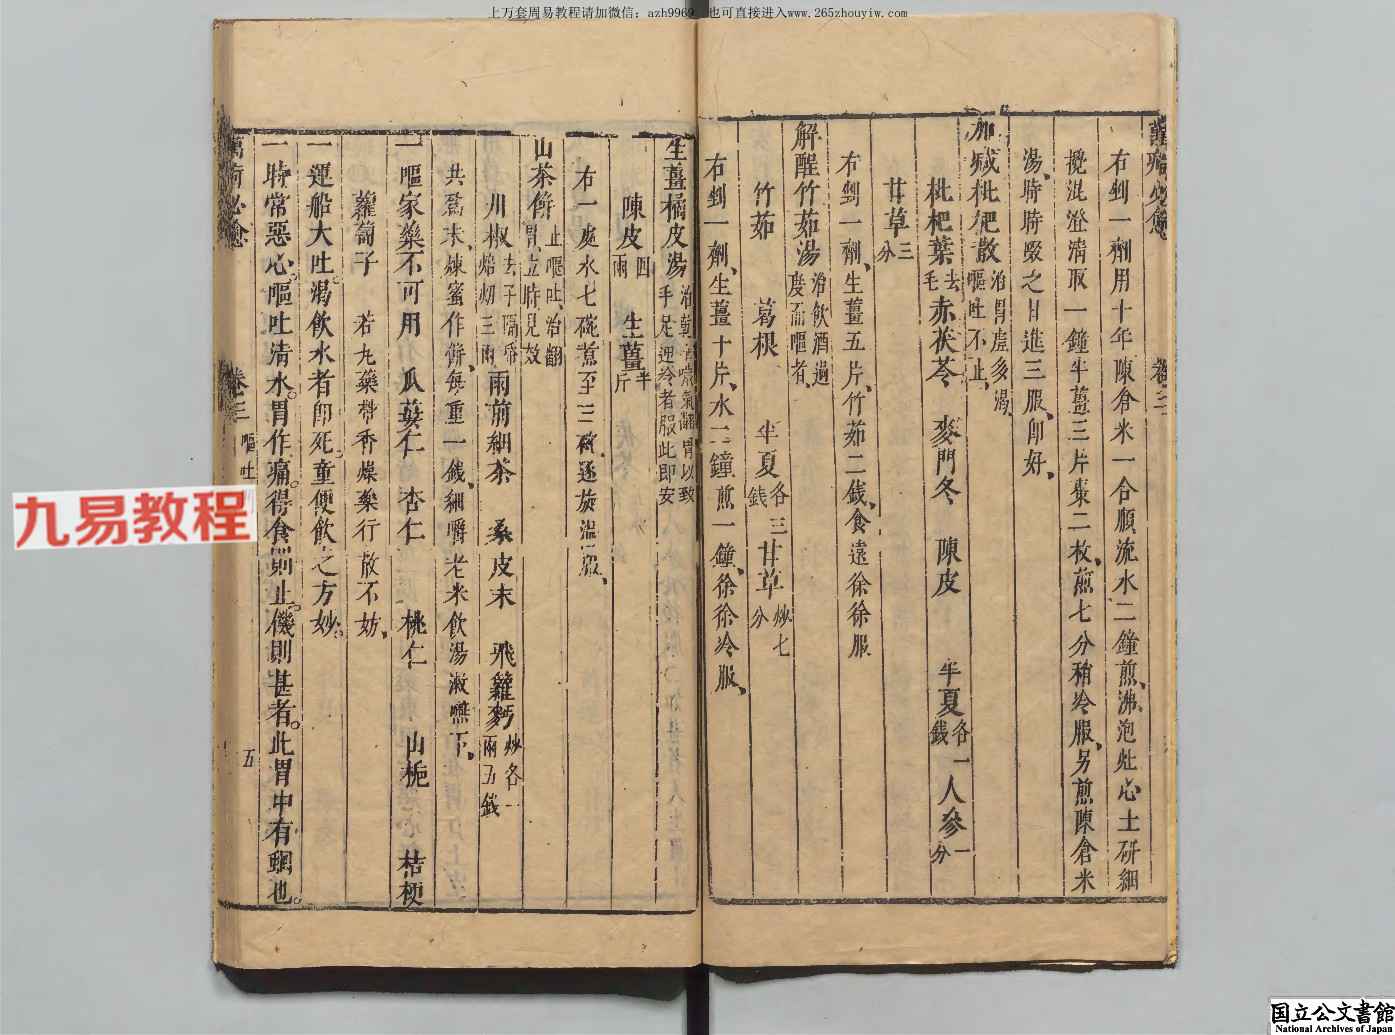 上万套周易教程请加微信：azh9969，也可直接进入www.265zhouyiw.com
右剉一劑用十年陳倉米一合順流水二鐘煎沸泡灶心土研細
攪混澄清取一鐘半薑三片棗二枚煎七分稍冷服另煎陳倉米
湯時時啜之日進三服卽好
加減枇杷散治胃虛多渴嘔吐不止
枇杷葉去毛赤茯苓　麥門冬　陳皮　半夏各一錢　人參一分
甘草三分
右剉一劑生薑五片竹茹二錢食遠徐徐服
解酲竹茹湯治飲酒過度而嘔者
竹茹　葛根　半夏各三錢　甘草炒七分
右剉一劑生薑十片水二鐘煎一鐘徐徐冷服
生薑橘皮湯治乾嘔氣翻胃以致手足逆冷者服此即安
陳皮四兩　生薑半斤
右一處水七碗煮至三碗逐旋溫服
山茶餠止嘔吐治翻胃立時見效
川椒去子隔帋焙切三兩　雨前細茶　桑皮末　飛籮麥麪炒各一兩五錢
共為末煉蜜作餠每重一錢細嚼老米飲湯漱嚥下
一嘔家藥不可用　瓜蔞仁　杏仁　桃仁　山梔　桔梗
蘿蔔子　若九藥帶香燥藥行散不妨
一運船大吐渴飲水者卽死童便飲之方妙
一時常惡心嘔吐清水胃作痛得食則止饑則甚者此胃中有蛔也
卷三
嘔吐
五
九易教程
国立公文書館
National Archives of Japan